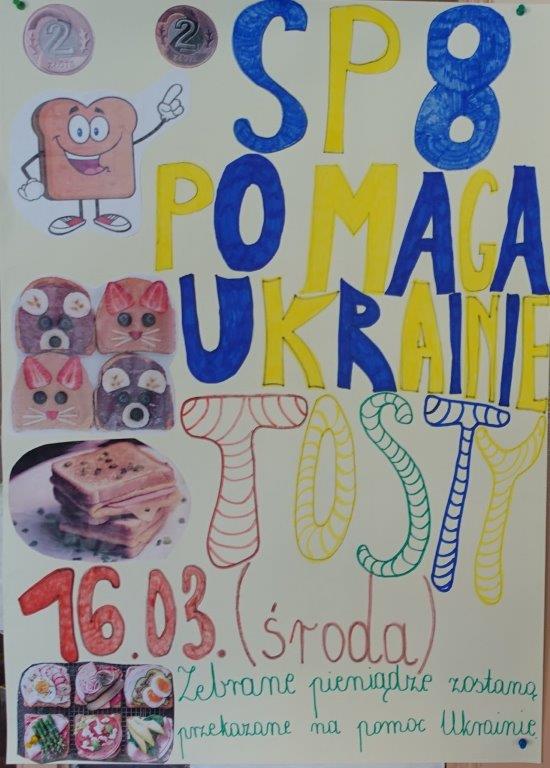 2 2
ZŁOTE
SP 8
POMAGA
UKRAINIE
TOSTY
16.03. (środa)
Zebrane pieniądze zostaną
przekazane na pomoc Ukrainie